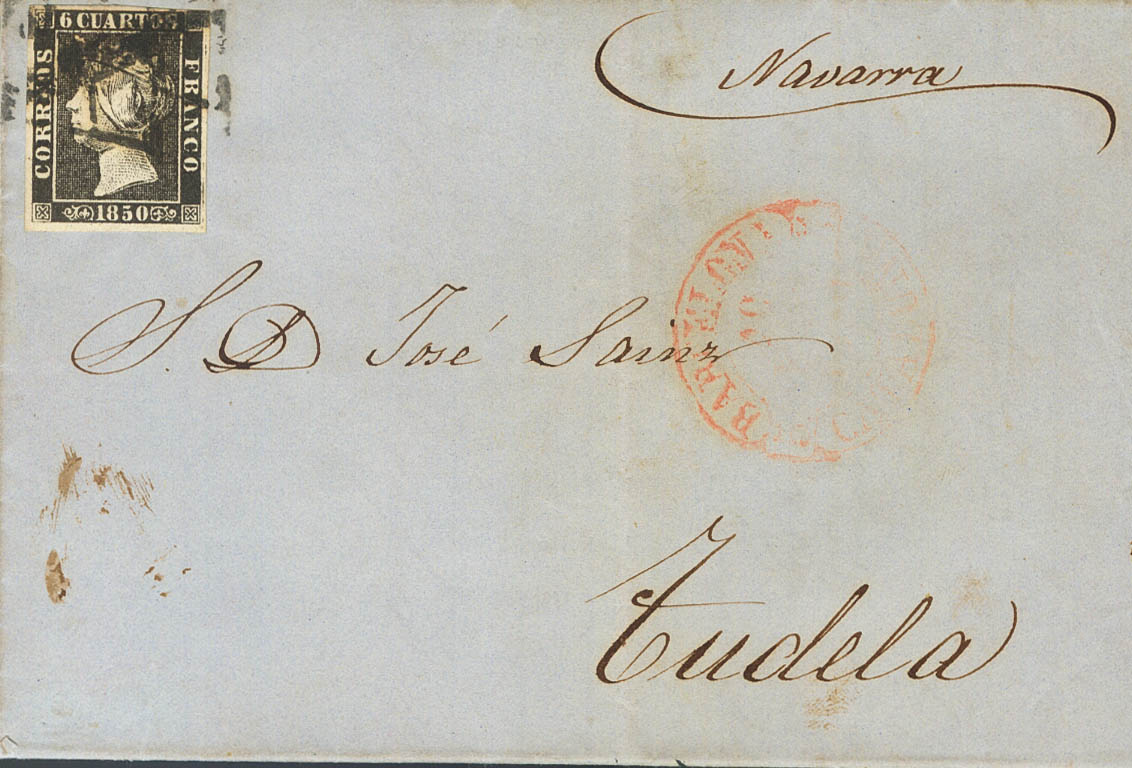 6 CUARTOS
CORREOS
FRANCO
1850
Navarra
BARCELONA
S. D José Sainz
Tudela